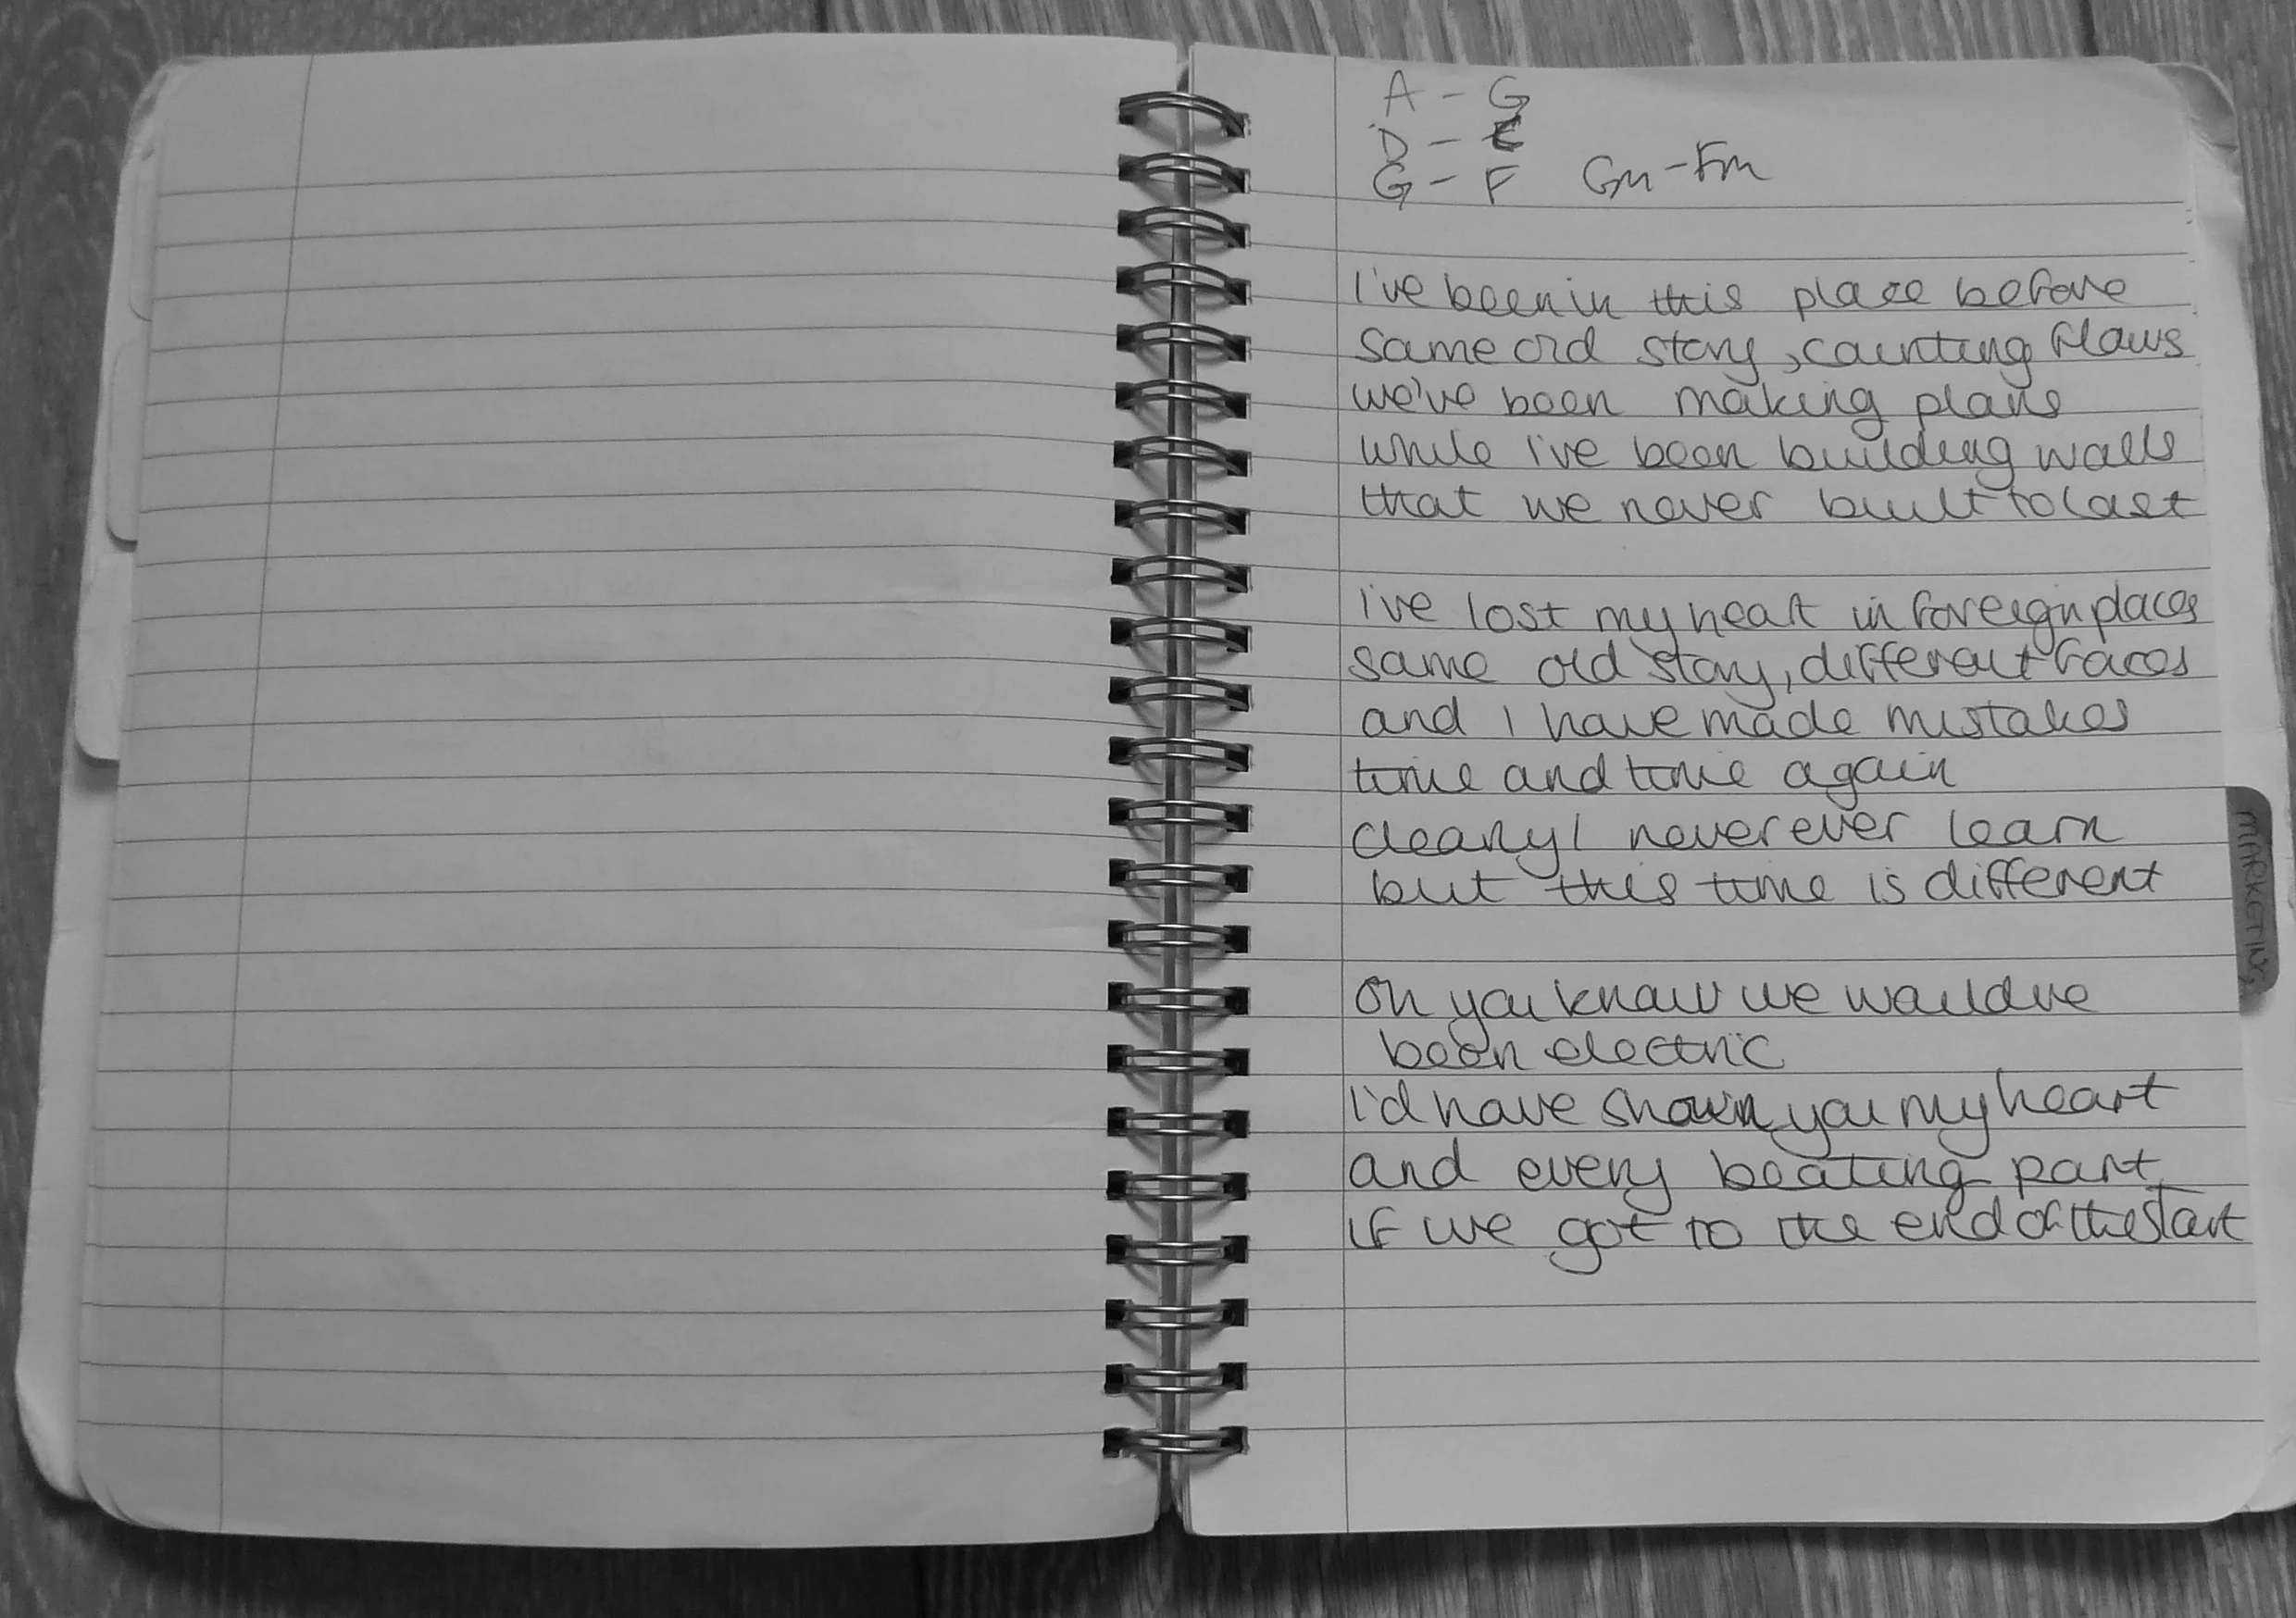 A - G
D - C
G - F Gm - Fm
I've been in this place before
same old story, counting flaws
we've been making plans
while i've been building walls
that we never built to last
i've lost my heart in foreign places
same old story, different faces
and I have made mistakes
time and time again
clearly I never ever learn
but this time is different
oh you know we would've
been electric
I'd have shown you my heart
and every beating part
if we got to the end of the start
MARKETING